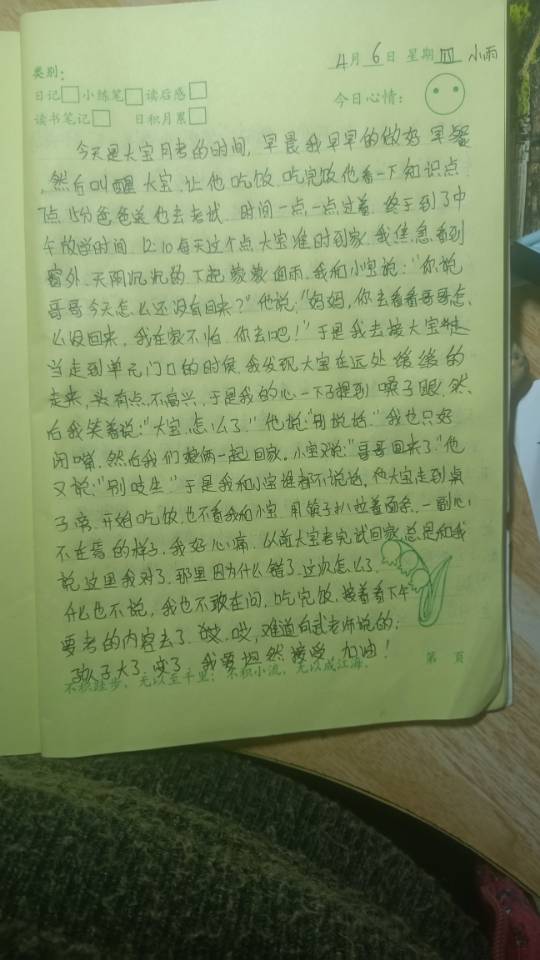 4月6日 星期四 小雨
类别：
日记 小练笔 读后感
今日心情：
读书笔记 日积月累
今天是大宝月考的时间，早晨我早早的做好早餐
，然后叫醒大宝，让他吃饭，吃完饭他看一下知识点
7点15分爸爸送他去考试，时间一点一点过着，终于到了中
午放学时间，12:10每天这个点大宝准时到家，我焦急看到
窗外，天阴沉沉的下起蒙蒙细雨，我和小宝说：“你说
哥哥今天怎么还没有回来？”他说：“妈妈，你去看看哥哥怎
么没回来，我在家不怕，你去吧！”于是我去接大宝
当走到单元门口的时候，我发现大宝在远处缓缓的
走来，头有点不高兴，于是我的心一下子提到嗓子眼，然
后我笑着说：“大宝，怎么了。”他说：“别说话。”我也只好
闭嘴，然后我们娘俩一起回家，小宝又说：“哥哥回来了。”他
又说：“别吱生。”于是我和小宝谁都不说话，大宝走到桌
子旁，开始吃饭，也不看我和小宝，用筷子扒拉着面条，一副心
不在焉的样子，我好心痛，以前大宝考完试回家总是和我
说，这里我对了，那里因为什么错了，这次怎么了，
什么也不说，我也不敢在问，吃完饭，接着看下午
要考的内容去了，哎，哎，难道向武老师说的：
孩子大了，变了，我要坦然接受，加油！
第 页
不积跬步，无以至千里；不积小流，无以成江海。